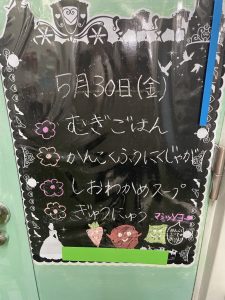 5月30日(金)
むぎごはん
かんこくふうにくじゃが
しおわかめスープ
ぎゅうにゅう